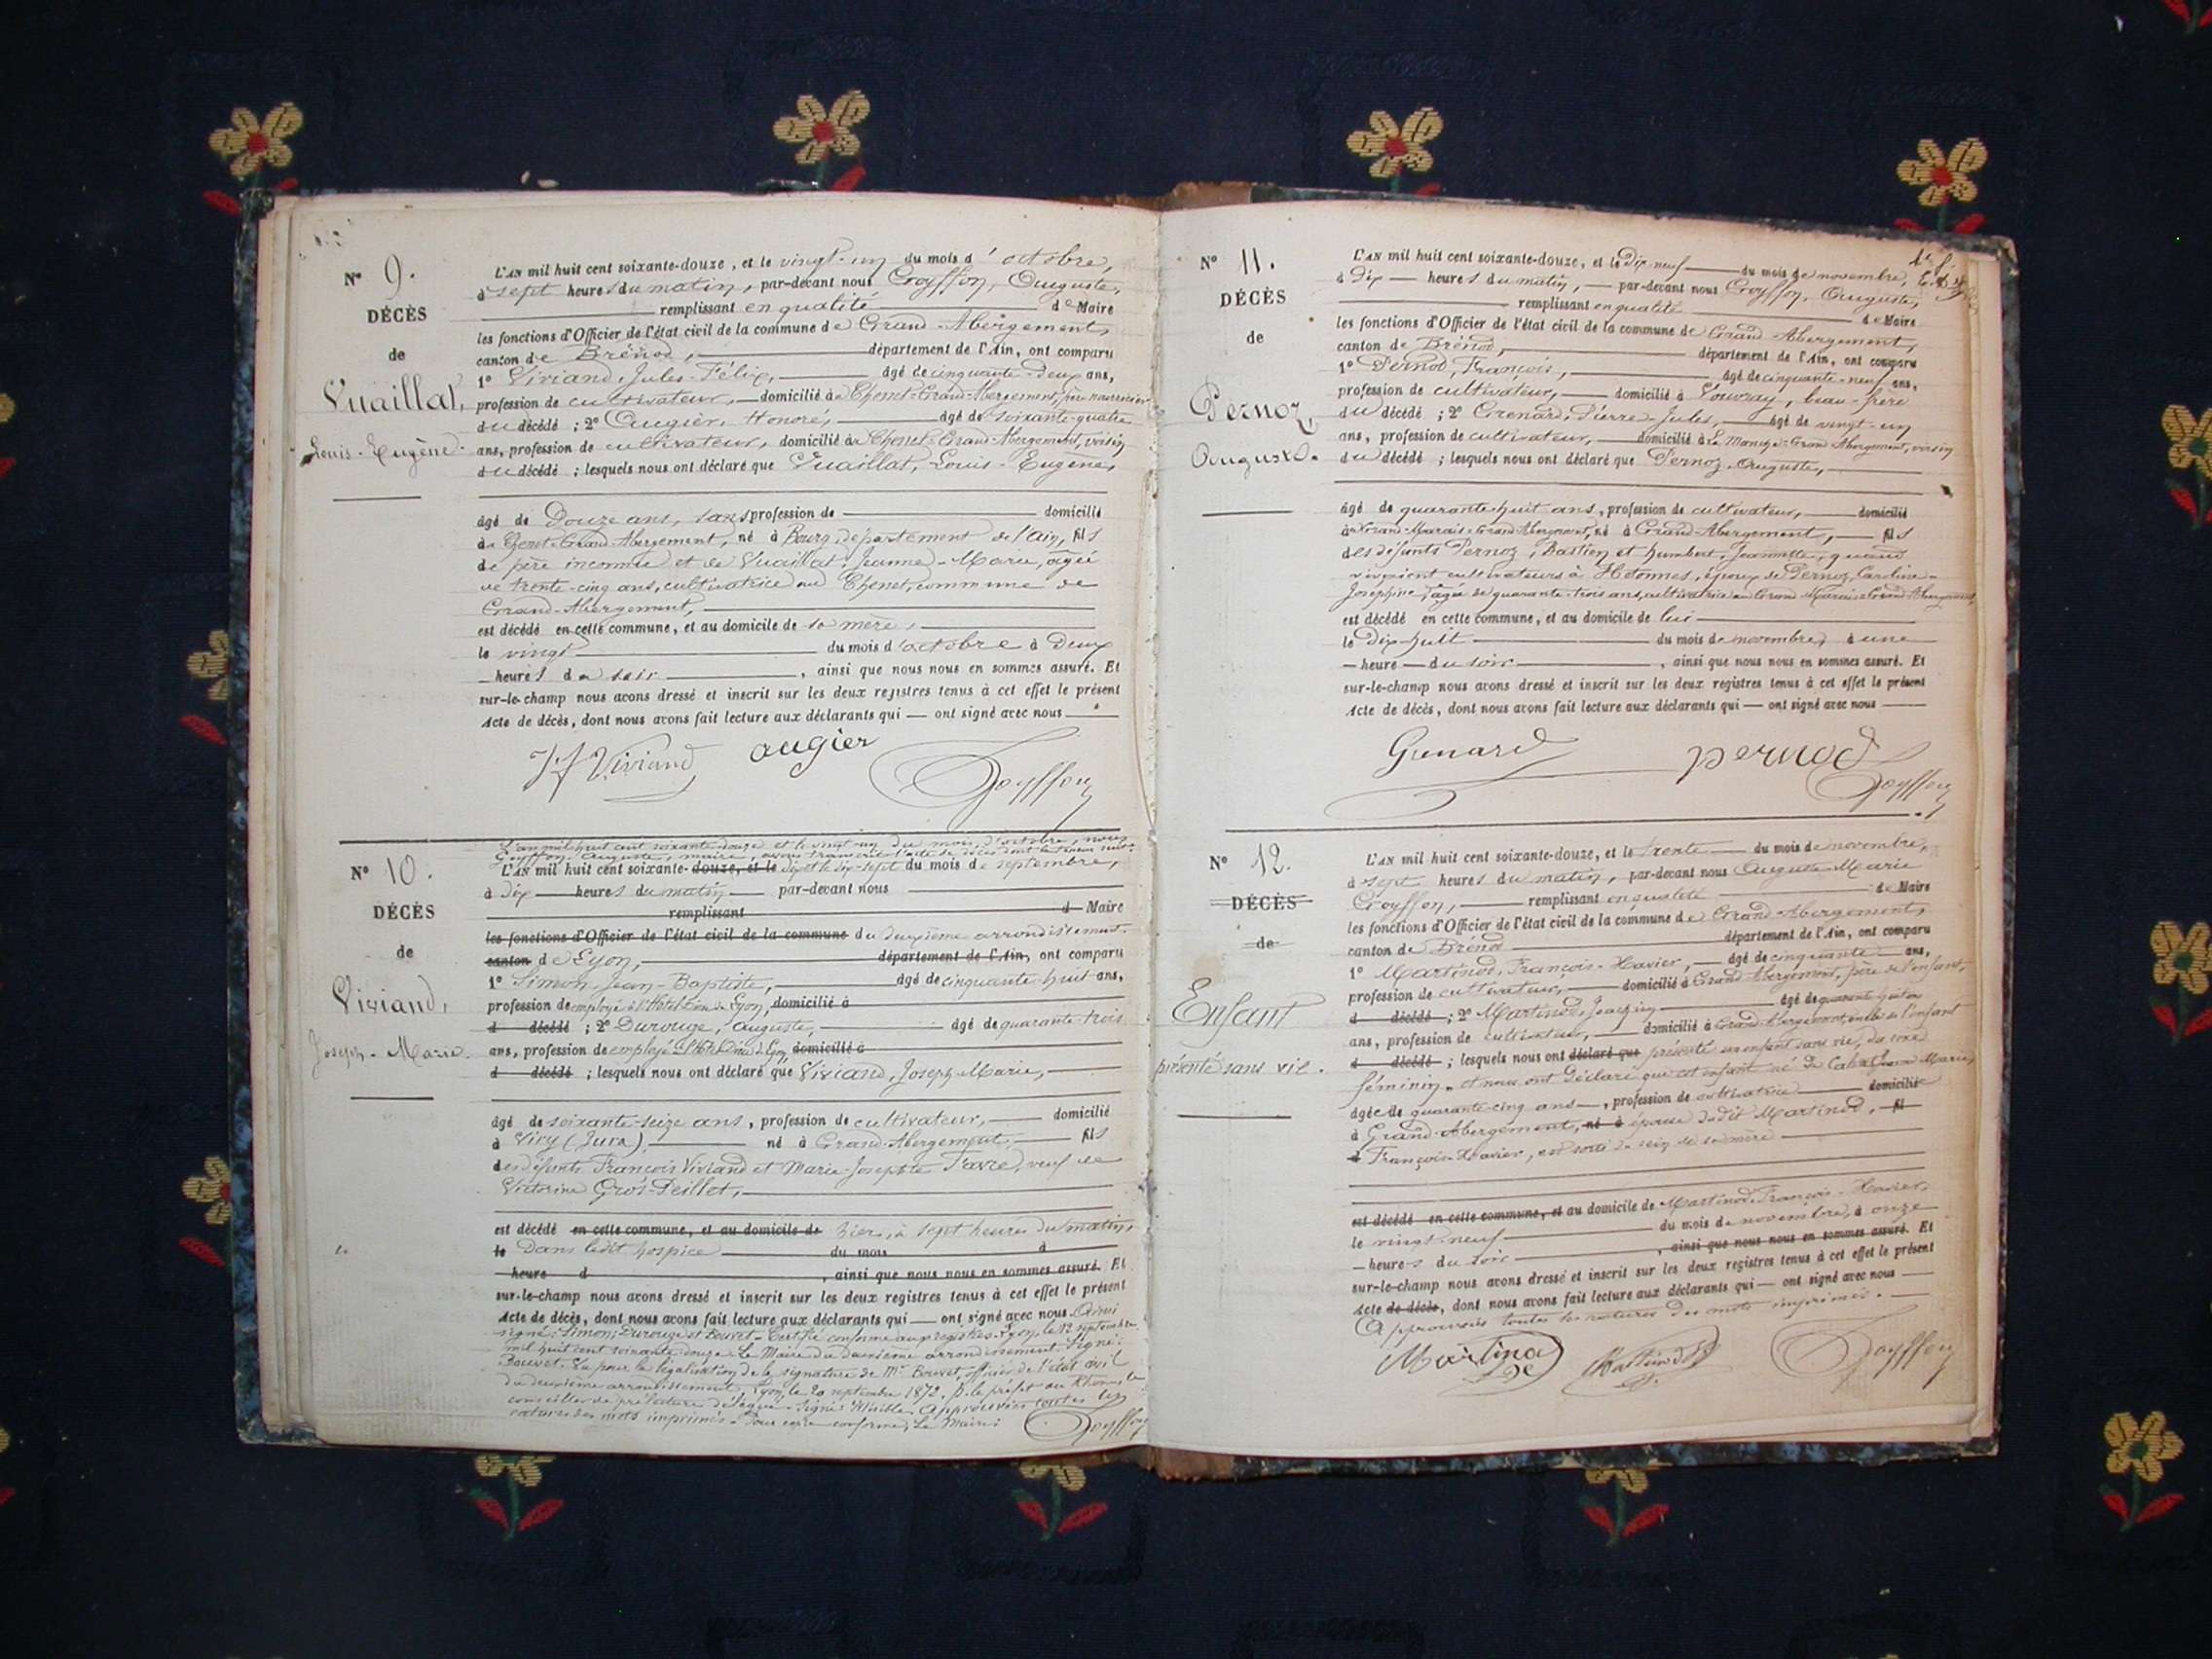 N° 9.
DÉCÈS
de
Vuaillat,
Louis-Eugène.
L'AN mil huit cent soixante-douze, et le vingt-un du mois d'octobre,
à sept heures du matin, par-devant nous Goyffon, Auguste,
remplissant en qualité de Maire
les fonctions d'Officier de l'état civil de la commune de Grand-Abergement,
canton de Brénod, département de l'Ain, ont comparu
1° Viviand, Jules-Félix, âgé de cinquante-deux ans,
profession de cultivateur, domicilié à Chenet-Grand-Abergement, père nourricier
du décédé ; 2° Augier, Honoré, âgé de soixante-quatre
ans, profession de cultivateur, domicilié à Chenet-Grand-Abergement, voisin
du décédé ; lesquels nous ont déclaré que Vuaillat, Louis-Eugène,
âgé de Douze ans, sans profession de domicilié
à Chenet-Grand-Abergement, né à Bourg, département de l'Ain, fils
de père inconnu et de Vuaillat, Jeanne-Marie, âgée
de trente-cinq ans, cultivatrice au Chenet, commune de
Grand-Abergement,
est décédé en cette commune, et au domicile de sa mère,
le vingt du mois d'octobre à Deux
heures du soir, ainsi que nous nous en sommes assuré. Et
sur-le-champ nous avons dressé et inscrit sur les deux registres tenus à cet effet le présent
Acte de décès, dont nous avons fait lecture aux déclarants qui ont signé avec nous
JF Viviand augier
Goyffon
N° 10.
DÉCÈS
de
Viviand,
Joseph-Marie.
L'an mil huit cent soixante-douze et le vingt-un du mois d'octobre, nous
Goyffon, Auguste, maire, avons transcrit l'acte de décès dont la teneur suit:
L'AN mil huit cent soixante-douze, et le dix-sept du mois de septembre,
à dix heures du matin par-devant nous
remplissant d Maire
les fonctions d'Officier de l'état civil de la commune du deuxième arrondissement
canton de Lyon, département de l'Ain, ont comparu
1° Simon, Jean-Baptiste, âgé de cinquante-huit ans,
profession de employé à l'Hôtel-Dieu de Lyon, domicilié à
d décédé ; 2° Durouge, Auguste, âgé de quarante-trois
ans, profession de employé à l'Hôtel-Dieu de Lyon, domicilié à
d décédé ; lesquels nous ont déclaré que Viviand, Joseph-Marie,
âgé de soixante-seize ans, profession de cultivateur, domicilié
à Viry (Jura), né à Grand-Abergement, fils
des défunts François Viviand et Marie-Josephte Favre, veuf de
Victorine Gros-Peillet,
est décédé en cette commune, et au domicile de hier, à sept heures du matin,
le Dans ledit hospice du mois à
heure d , ainsi que nous nous en sommes assuré. Et
sur-le-champ nous avons dressé et inscrit sur les deux registres tenus à cet effet le présent
Acte de décès, dont nous avons fait lecture aux déclarants qui ont signé avec nous. Ainsi
signé: Simon; Durouge et Bouvet. Certifié conforme aux registres. Lyon, le 17 septembre
mil huit cent soixante-douze. Le Maire du deuxième arrondissement. Signé:
Bouvet. Vu pour la légalisation de la signature de Mr Bouvet, officier de l'état civil
du deuxième arrondissement, Lyon, le 20 septembre 1872. P. le préfet du Rhône, le
conseiller de préfecture délégué. Signé: Approuvées toutes les
ratures des mots imprimés. Pour copie conforme, Le Maire:
Goyffon
N° 11.
DÉCÈS
de
Pernoz,
Auguste.
L'AN mil huit cent soixante-douze, et le Dix-neuf du mois de novembre,
à Dix heures du matin, par-devant nous Goyffon, Auguste,
remplissant en qualité de Maire
les fonctions d'Officier de l'état civil de la commune de Grand-Abergement,
canton de Brénod, département de l'Ain, ont comparu
1° Pernod, François, âgé de cinquante-neuf ans,
profession de cultivateur, domicilié à Vouvray, beau-frère
du décédé ; 2° Grenard, Pierre-Jules, âgé de vingt-un
ans, profession de cultivateur, domicilié à Grand-Abergement, voisin
du décédé ; lesquels nous ont déclaré que Pernoz, Auguste,
âgé de quarante-huit ans, profession de cultivateur, domicilié
au Grand-Marais-Grand-Abergement, né à Grand-Abergement, fils
des défunts Pernoz, Bastien et Humbert, Jeannette, quand
vivaient cultivateurs à Hotonnes, époux de Pernoz, Caroline-
Joséphine, âgée de quarante-trois ans, cultivatrice au Grand-Marais-Grand-Abergement,
est décédé en cette commune, et au domicile de lui
le Dix-huit du mois de novembre, à une
heure du soir, ainsi que nous nous en sommes assuré. Et
sur-le-champ nous avons dressé et inscrit sur les deux registres tenus à cet effet le présent
Acte de décès, dont nous avons fait lecture aux déclarants qui ont signé avec nous
Grenard pernod
Goyffon
N° 12.
DÉCÈS
de
Enfant
présenté sans vie.
L'AN mil huit cent soixante-douze, et le trente du mois de novembre,
à sept heures du matin, par-devant nous Auguste-Marie
Goyffon, remplissant en qualité de Maire
les fonctions d'Officier de l'état civil de la commune de Grand-Abergement,
canton de Brénod département de l'Ain, ont comparu
1° Martinod, François-Xavier, âgé de cinquante ans,
profession de cultivateur, domicilié à Grand-Abergement, père de l'enfant,
d décédé ; 2° Martinod, Joachim âgé de quarante-huit
ans, profession de cultivateur, domicilié à Grand-Abergement, oncle de l'enfant
d décédé ; lesquels nous ont déclaré que présenté un enfant sans vie, du sexe
féminin, et nous ont déclaré que cet enfant né de Marie,
âgée de quarante-cinq ans, profession de cultivatrice domicilié
à Grand-Abergement, né à épouse dudit Martinod, fil
d François-Xavier, est sorti du sein de sa mère
est décédé en cette commune, et au domicile de Martinod, François-Xavier,
le vingt-neuf du mois de novembre, à onze
heures du soir, ainsi que nous nous en sommes assuré. Et
sur-le-champ nous avons dressé et inscrit sur les deux registres tenus à cet effet le présent
Acte de décès, dont nous avons fait lecture aux déclarants qui ont signé avec nous
Approuvées toutes les ratures des mots imprimés.
Martinod Martinod Goyffon